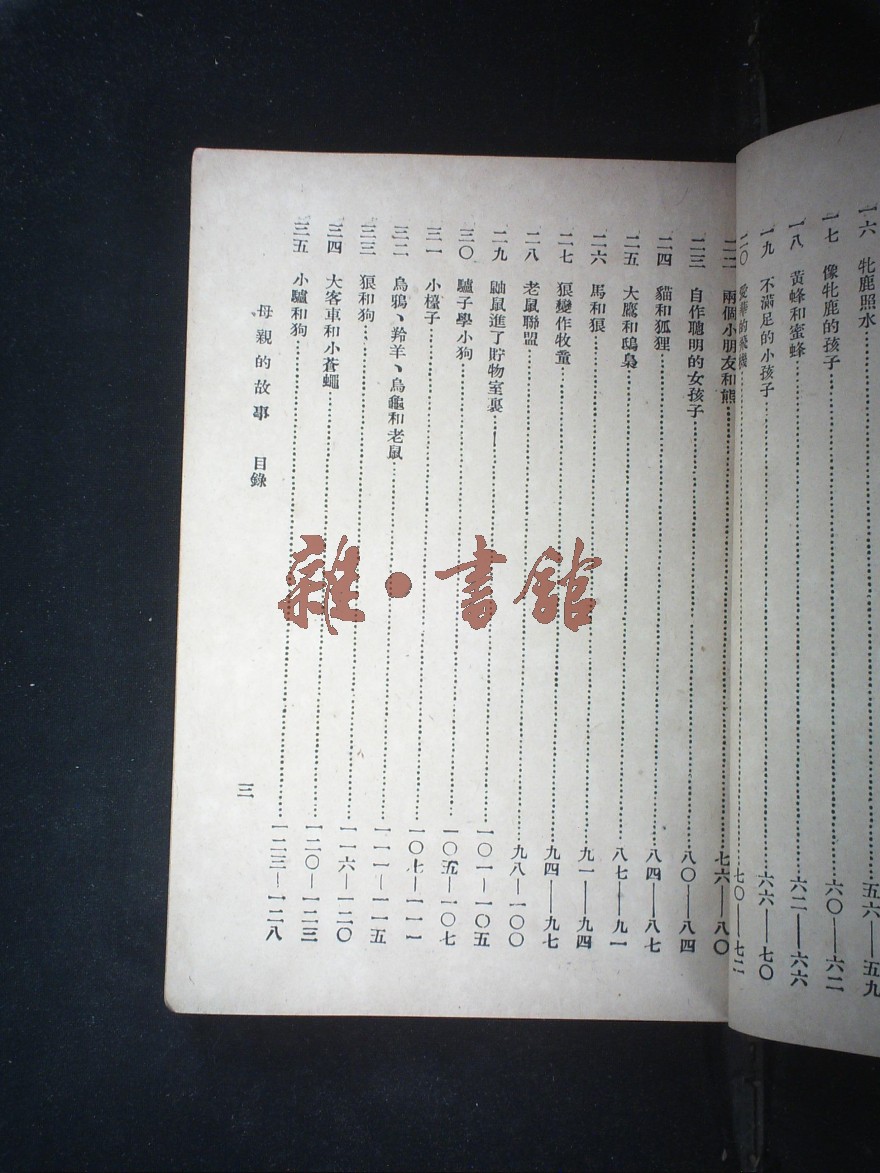 一六 牝鹿照水……五六—五九
一七 像牝鹿的孩子……六〇—六二
一八 黃蜂和蜜蜂……六二—六六
一九 不滿足的小孩子……六六—七〇
二〇 愛華的飛機……七〇—七二
二二 兩個小朋友和熊……七六—八〇
二三 自作聰明的女孩子……八〇—八四
二四 貓和狐狸……八四—八七
二五 大鷹和鴟梟……八七—九一
二六 馬和狼……九一—九四
二七 狼變作牧童……九四—九七
二八 老鼠聯盟……九八—一〇〇
二九 鼬鼠進了貯物室裏……一〇一—一〇五
三〇 驢子學小狗……一〇五—一〇七
三一 小檯子……一〇七—一一一
三二 烏鴉、羚羊、烏龜和老鼠……一一一—一一五
三三 狼和狗……一一六—一二〇
三四 大客車和小蒼蠅……一二〇—一二三
三五 小驢和狗……一二三—一二八
母親的故事 目錄
三
雜·書館